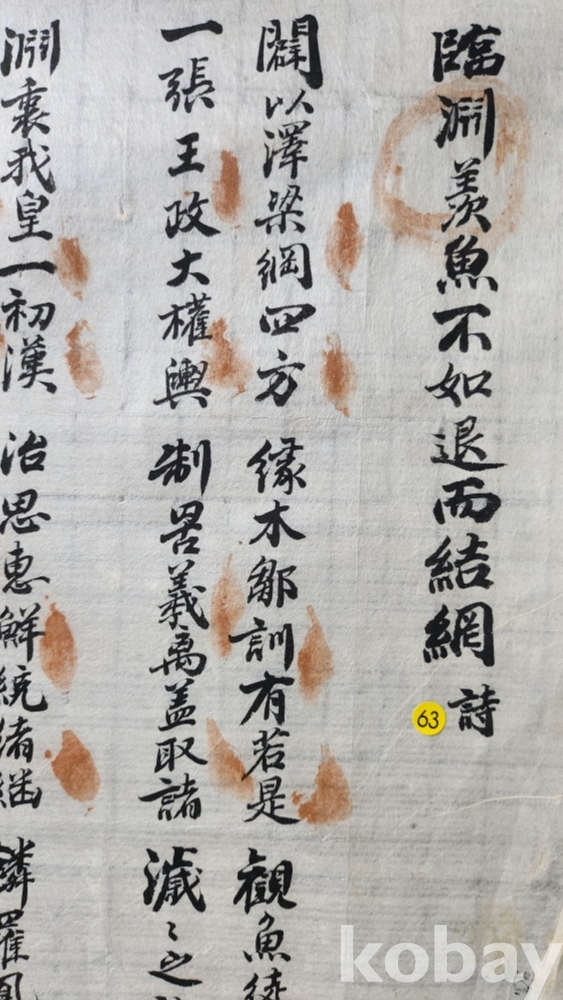 臨渊羨魚不如退而結網 詩
63
闢以澤梁綱四方 緣木鄒訓有若是 觀魚
一張王政大權輿 制罟義离盖取諸 濊〻之
渊衷我皇一初漢 治思惠鮮統緒 羅鳳
kobay